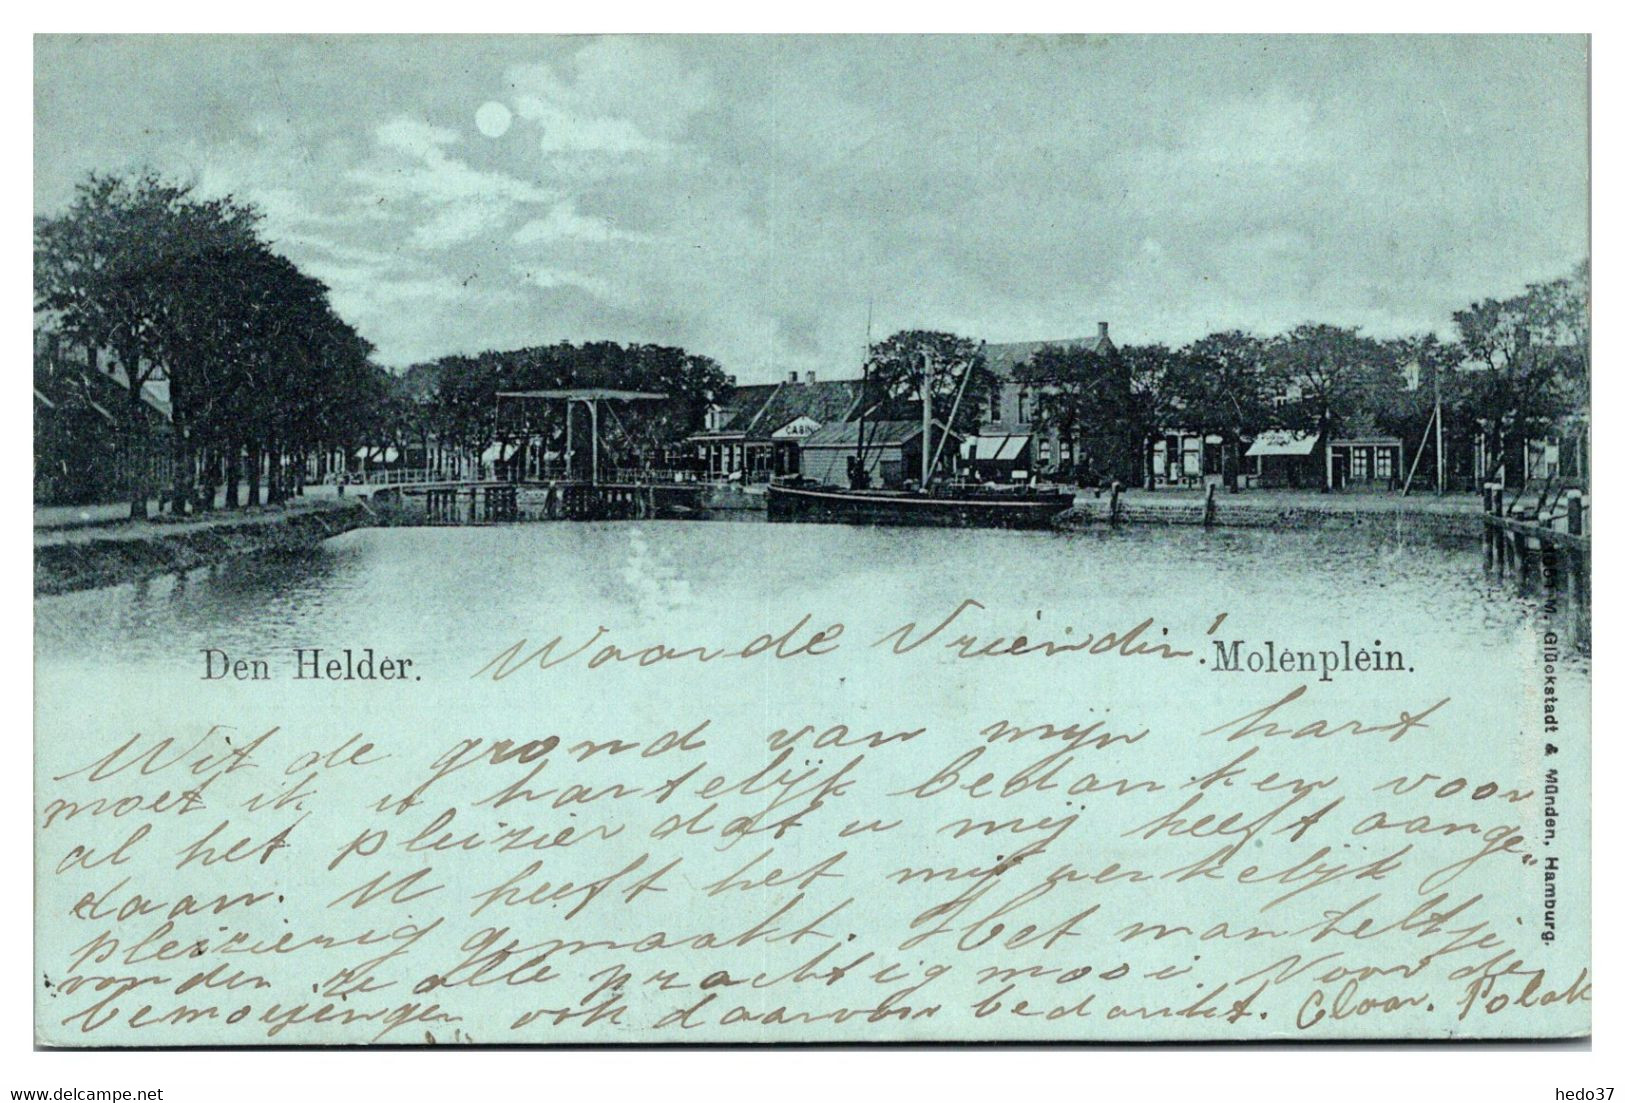 CABIN
Den Helder.
Waarde Vriendin!
Molenplein.
Uit de grond van mijn hart
moet ik u hartelijk bedanken voor
al het pleizier dat u mij heeft aange„
daan. U heeft het mij werkelijk
pleizierig gemaakt. Het manteltje
vonden ze alle prachtig mooi. Voor de
bemoeijingen ook daarvoor bedankt. Claar. Polak
M. Glückstadt & Münden, Hamburg.
delcampe.net
hedo37